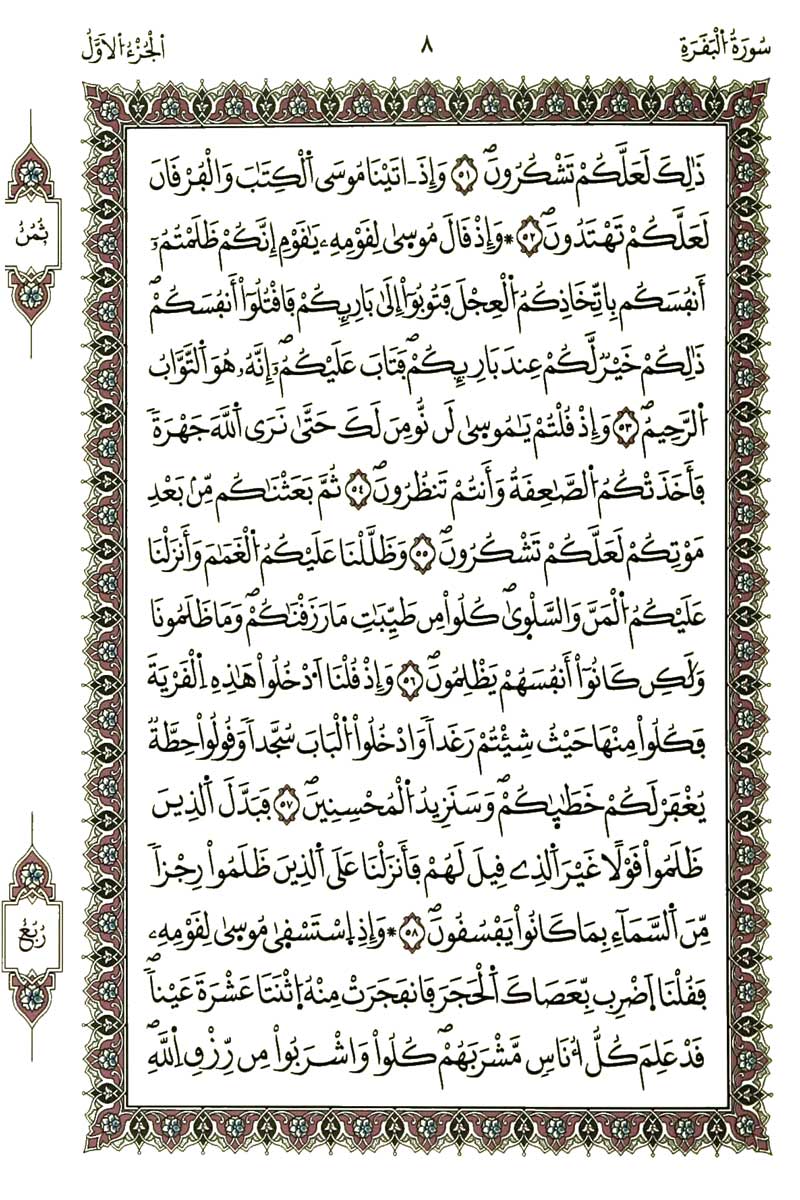 سُورَةُ الْبَقَرَةِ
٨
اَلْجُزْءُ الْأَوَّلُ
ذَٰلِكَ لَعَلَّكُمْ تَشْكُرُونَۖ ٥١ وَإِذَ اتَيْنَا مُوسَى اَلْكِتَٰبَ وَالْفُرْقَانَ
لَعَلَّكُمْ تَهْتَدُونَۖ ٥٢ * وَإِذْ قَالَ مُوسىٰ لِقَوْمِهِۦ يَٰقَوْمِ إِنَّكُمْ ظَلَمْتُمُۥٓ
أَنفُسَكُم بِاتِّخَاذِكُمُ اُلْعِجْلَ فَتُوبُوٓاْ إِلَىٰ بَارِئِكُمْ فَاقْتُلُوٓاْ أَنفُسَكُمْۖ
ذَٰلِكُمْ خَيْرٞ لَّكُمْ عِندَ بَارِئِكُمْ فَتَابَ عَلَيْكُمُۥٓۖ إِنَّهُۥ هُوَ اَلتَّوَّابُ
اُلرَّحِيمُۖ ٥٣ وَإِذْ قُلْتُمْ يَٰمُوسىٰ لَن نُّومِنَ لَكَ حَتَّىٰ نَرَى اَللَّهَ جَهْرَةٗ
فَأَخَذَتْكُمُ اُلصَّٰعِقَةُ وَأَنتُمْ تَنظُرُونَۖ ٥٤ ثُمَّ بَعَثْنَٰكُم مِّنۢ بَعْدِ
مَوْتِكُمْ لَعَلَّكُمْ تَشْكُرُونَۖ ٥٥ وَظَلَّلْنَا عَلَيْكُمُ اُلْغَمَٰمَ وَأَنزَلْنَا
عَلَيْكُمُ اُلْمَنَّ وَالسَّلْوىٰۖ كُلُواْ مِن طَيِّبَٰتِ مَا رَزَقْنَٰكُمْۖ وَمَا ظَلَمُونَا
وَلَٰكِن كَانُوٓاْ أَنفُسَهُمْ يَظْلِمُونَۖ ٥٦ وَإِذْ قُلْنَا اَدْخُلُواْ هَٰذِهِ اِلْقَرْيَةَ
فَكُلُواْ مِنْهَا حَيْثُ شِئْتُمْ رَغَداٗ وَادْخُلُواْ اُلْبَابَ سُجَّداٗ وَقُولُواْ حِطَّةٞ
يُغْفَرْ لَكُمْ خَطَٰيَٰكُمْۖ وَسَنَزِيدُ اُلْمُحْسِنِينَۖ ٥٧ فَبَدَّلَ اَلذِينَ
ظَلَمُواْ قَوْلًا غَيْرَ اَلذِے قِيلَ لَهُمْ فَأَنزَلْنَا عَلَى اَلذِينَ ظَلَمُواْ رِجْزاٗ
مِّنَ اَلسَّمَآءِ بِمَا كَانُواْ يَفْسُقُونَۖ ٥٨ * وَإِذِ اِسْتَسْقىٰ مُوسىٰ لِقَوْمِهِۦ
فَقُلْنَا اَضْرِب بِّعَصَاكَ اَلْحَجَرَ فَانفَجَرَتْ مِنْهُ اُثْنَتَا عَشْرَةَ عَيْناٗۖ
قَدْ عَلِمَ كُلُّ أُنَاسٖ مَّشْرَبَهُمْۖ كُلُواْ وَاشْرَبُواْ مِن رِّزْقِ اِللَّهِ
ثُمُنُ
رُبُعُ